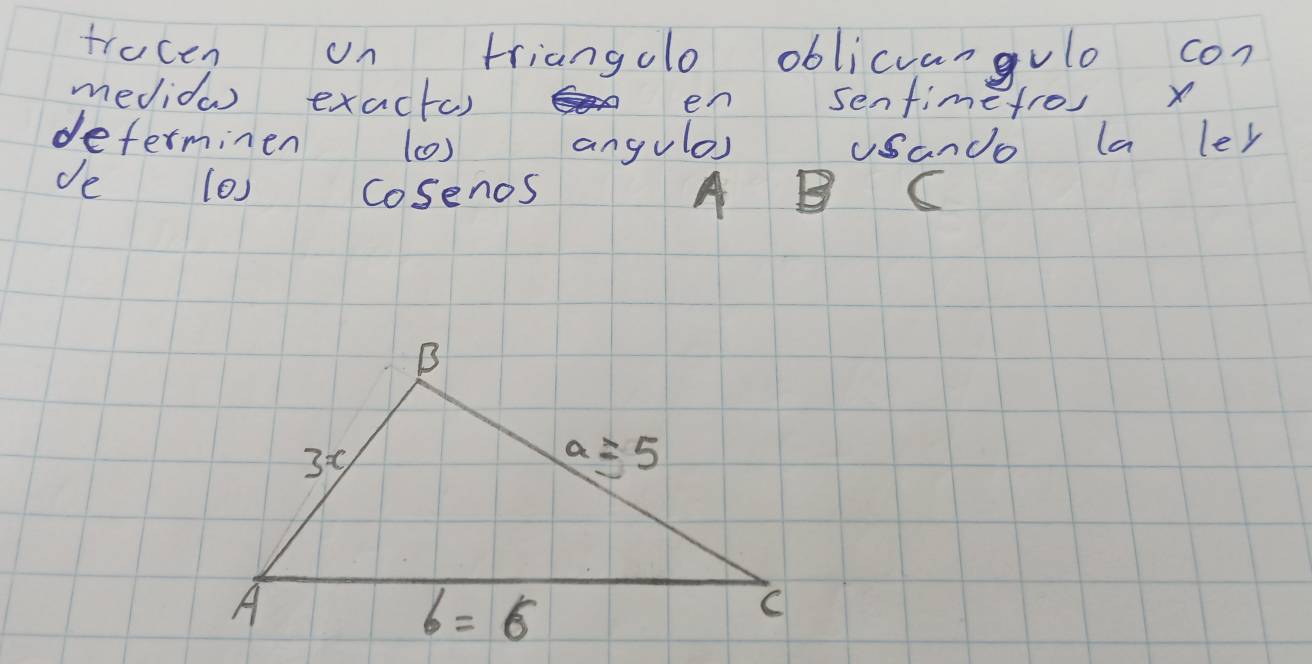 tracen un triangulo oblicuangulo con
medidas exactas en sentimetros y
determinen los angulos usando la ley
de los cosenos A B C
B
3=c
a=5
A
C
b=6